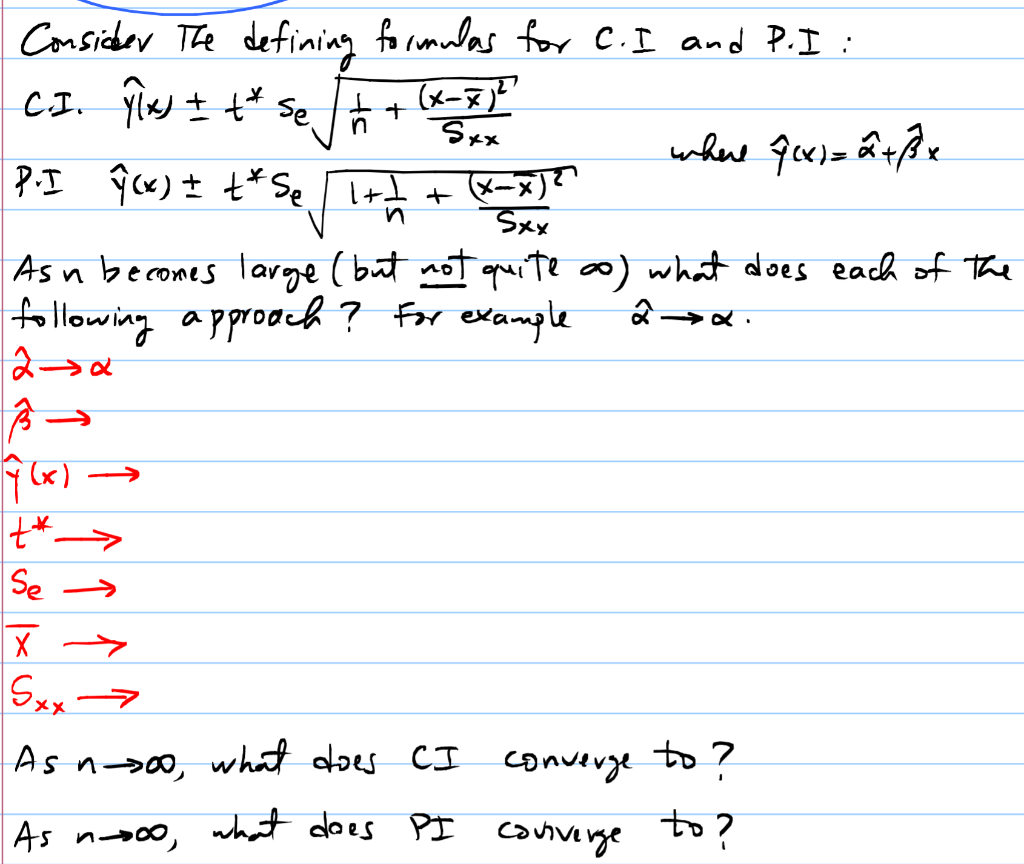 Consider The defining formulas for C.I and P.I :
C.I. ŷ(x) ± t* Se √(1/n + (x-x̄)²/Sxx)
where ŷ(x) = α̂ + β̂x
P.I ŷ(x) ± t* Se √(1 + 1/n + (x-x̄)²/Sxx)
As n becomes large (but not quite ∞) what does each of the
following approach? For example α̂ → α.
α̂ → α
β̂ →
ŷ(x) →
t* →
Se →
x̄ →
Sxx →
As n→∞, what does CI converge to?
As n→∞, what does PI converge to?